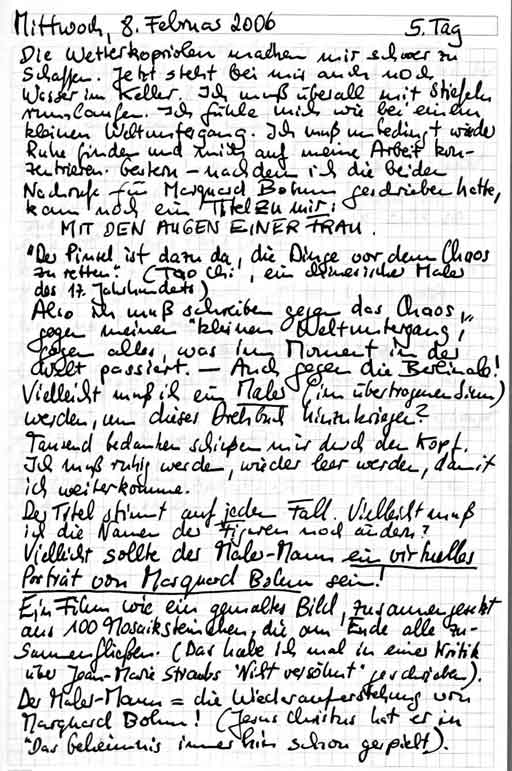 Mittwoch, 8. Februar 2006 5. Tag
Die Wetterkapriolen machen mir schwer zu
schaffen. Jetzt steht bei mir auch noch
Wasser im Keller. Ich muß überall mit Stiefeln
rumlaufen. Ich fühle mich wie bei einem
kleinen Weltuntergang. Ich muß unbedingt wieder
Ruhe finden und mich auf meine Arbeit kon-
zentrieren. Gestern – nachdem ich die beiden
Nachrufe für Marquard Bohm geschrieben hatte,
kam noch ein Titel zu mir:
MIT DEN AUGEN EINER FRAU.
"Der Pinsel ist dazu da, die Dinge vor dem Chaos
zu retten." (Tao Chi, ein chinesischer Maler
des 17. Jahrhunderts)
Also ich muß schreiben gegen das Chaos,
gegen meinen "kleinen Weltuntergang",
gegen alles, was im Moment in der
Welt passiert. – Auch gegen die Berlinale!
Vielleicht muß ich ein Maler (im übertragenen Sinn)
werden, um dieses Drehbuch hinzukriegen?
Tausend Gedanken schießen mir durch den Kopf.
Ich muß ruhig werden, wieder leer werden, damit
ich weiterkomme.
Der Titel stimmt auf jeden Fall. Vielleicht muß
ich die Namen der Figuren noch ändern?
Vielleicht sollte der Maler-Mann ein virtuelles
Porträt von Marquard Bohm sein!
Ein Film wie ein gemaltes Bild, zusammengesetzt
aus 100 Mosaiksteinchen, die am Ende alle zu-
sammenfließen. (Das habe ich mal in einer Kritik
über Jean-Marie Straubs "Nicht versöhnt" geschrieben).
Der Maler-Mann = die Wiederauferstehung von
Marquard Bohm! (Jesus Christus hat er in
"Das Geheimnis" immerhin schon gespielt).